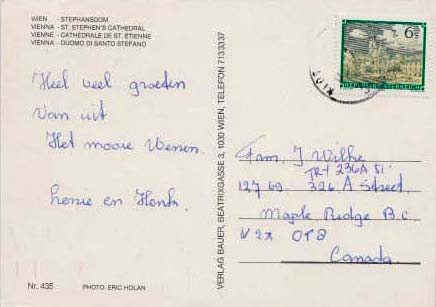 WIEN - STEPHANSDOM
VIENNA - ST. STEPHEN'S CATHEDRAL
VIENNE - CATHÉDRALE DE ST. ÉTIENNE
VIENNA - DUOMO DI SANTO STEFANO
Heel veel groeten
van uit
Het mooie Wenen.
henie en Henk.
Nr. 435 PHOTO: ERIC HOLAN
VERLAG BAUER, BEATRIXGASSE 3, 1030 WIEN, TELEFON 7133337
S 6
REPUBLIK ÖSTERREICH
Fam. J Wilhe
TR-1 236A St.
127 69 326 A Street.
Maple Ridge B.C.
V 2X OT8
Canada.